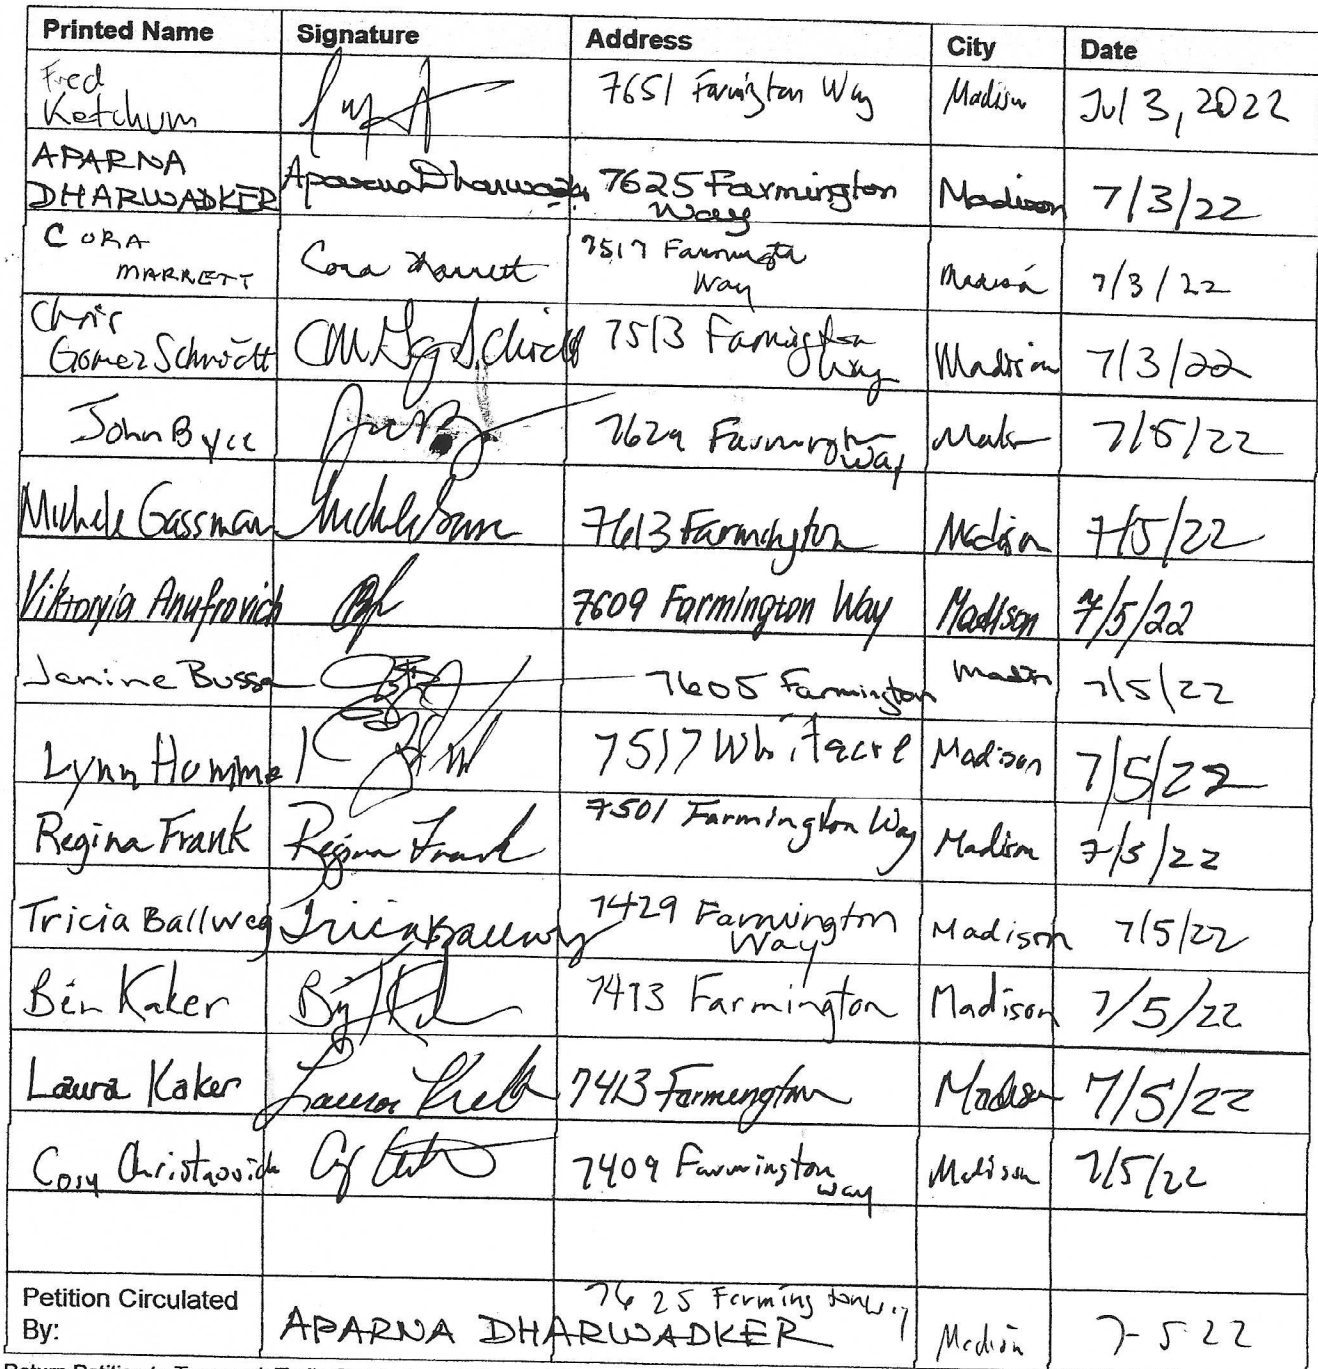 Printed Name Signature Address City Date
Fred Ketchum 7651 Farmington Way Madison Jul 3, 2022
APARNA DHARWADKER Aparna Dharwadker 7625 Farmington Way Madison 7/3/22
CORA MARRETT Cora Marrett 7517 Farmington Way Madison 7/3/22
Chris Gomez Schmidt 7513 Farmington Way Madison 7/3/22
John Byce 7629 Farmington Way Madison 7/5/22
Michele Gassman 7613 Farmington Madison 7/5/22
Viktoryia Anufrovich 7609 Farmington Way Madison 7/5/22
Janine Busse 7605 Farmington Madison 7/5/22
Lynn Humme 7517 Whitacre Madison 7/5/22
Regina Frank Regina Frank 7501 Farmington Way Madison 7/5/22
Tricia Ballweg Tricia Ballweg 7429 Farmington Way Madison 7/5/22
Ben Kaker 7413 Farmington Madison 7/5/22
Laura Kaker Laura 7413 Farmington Madison 7/5/22
Cory 7409 Farmington Way Madison 7/5/22
Petition Circulated By: APARNA DHARWADKER 7625 Farmington Way Madison 7-5 22